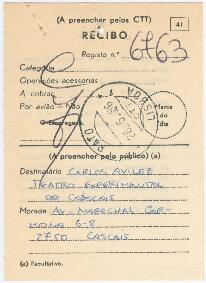 (A preencher pelos CTT)
41
RECIBO
Registo n.º 6763
Categoria
Operações acessórias
A cobrar
Por avião — Não
Marca do dia
O Empregado,
LISBOA
RATO
(A preencher pelo público) (a)
Destinatário CARLOS AVILEZ
TEATRO EXPERIMENTAL
DE CASCAIS
Morada AV. MARECHAL CAR-
MONA 6-B
2750 CASCAIS
(a) Facultativo.